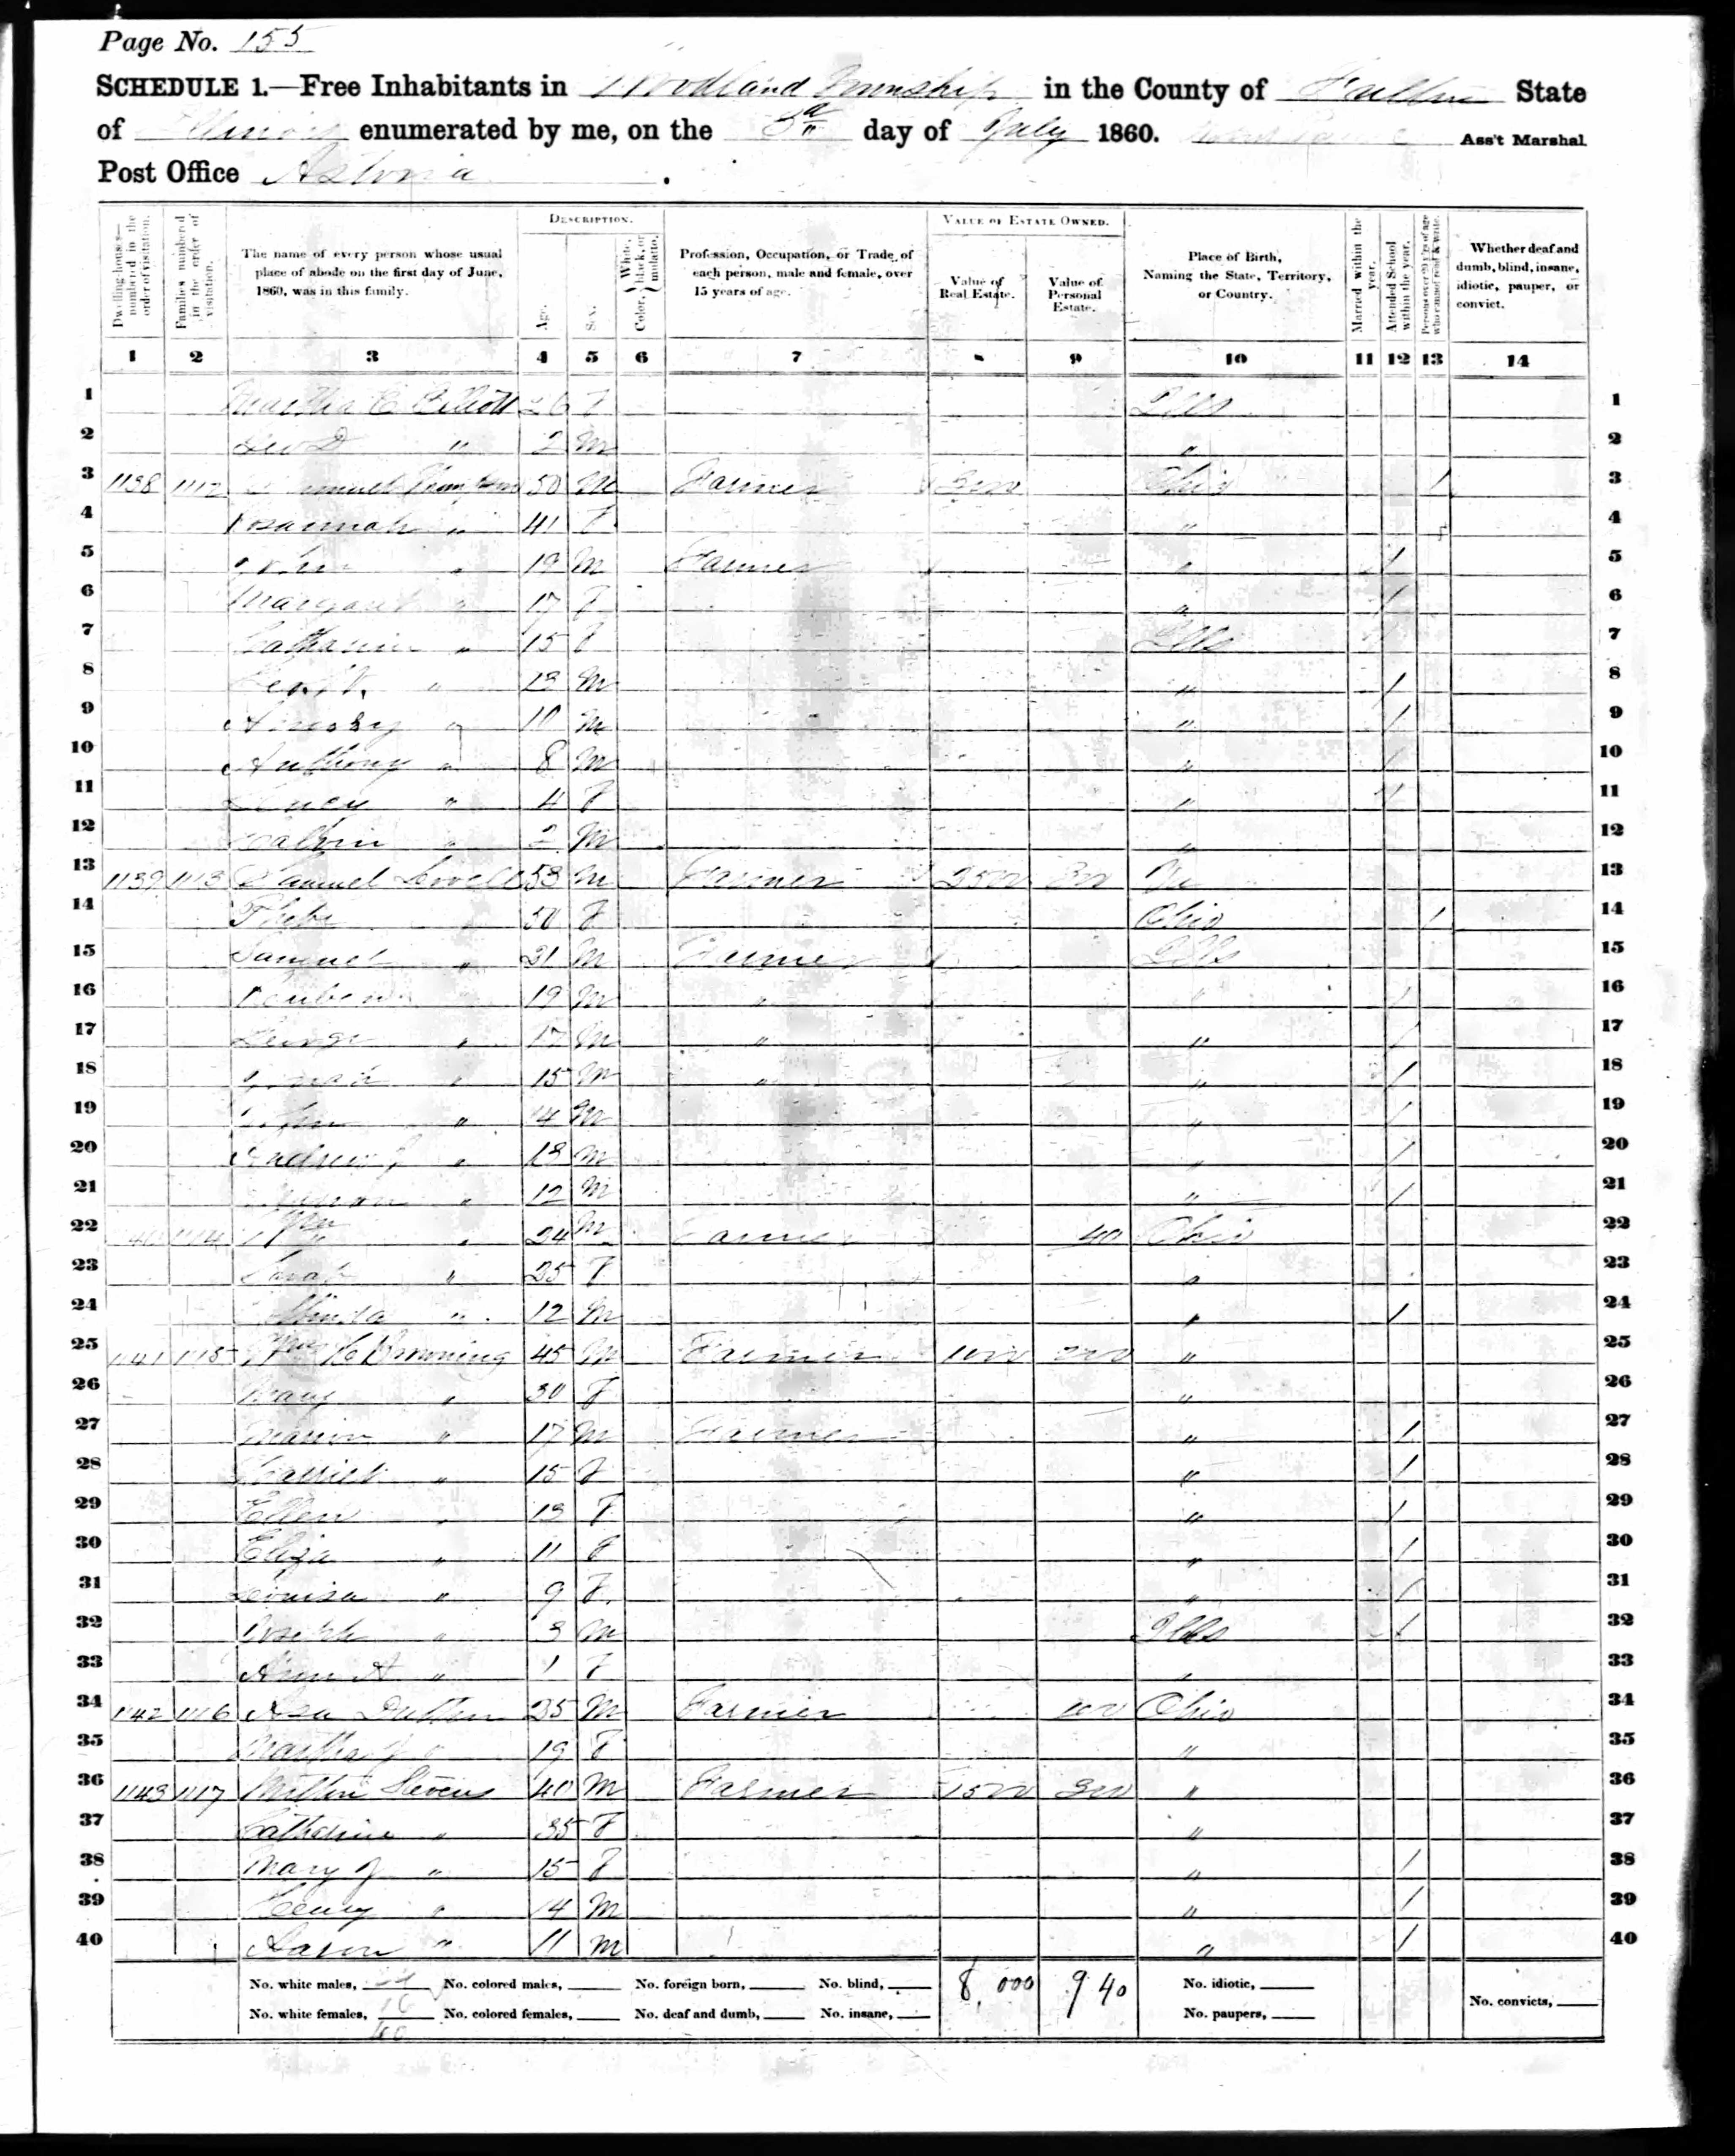 Page No. 155
SCHEDULE 1.—Free Inhabitants in Woodland Township in the County of Fulton State
of Illinois enumerated by me, on the day of July 1860. Ass't Marshal.
Post Office Astoria.
DESCRIPTION. VALUE OF ESTATE OWNED.
Dwelling-houses—numbered in the order of visitation. Families numbered in the order of visitation. The name of every person whose usual place of abode on the first day of June, 1860, was in this family. Age. Sex. Color, White, black, or mulatto. Profession, Occupation, or Trade of each person, male and female, over 15 years of age. Value of Real Estate. Value of Personal Estate. Place of Birth, Naming the State, Territory, or Country. Married within the year. Attended School within the year. Persons over 20 y'rs of age who cannot read & write. Whether deaf and dumb, blind, insane, idiotic, pauper, or convict.
1 2 3 4 5 6 7 9 10 11 12 13 14
1 Martha C Elliott 26 F Ills 1
2 " 2 M " 2
3 1138 1112 50 M Farmer Ohio / 3
4 " 41 F " 4
5 John " 19 M Farmer " / 5
6 Margaret " 17 F " / 6
7 Catharine " 15 F Ills 7
8 " 13 M " / 8
9 " 10 M " / 9
10 Anthony " 8 M " / 10
11 " 4 F " / 11
12 Calvin " 2 M " 12
13 1139 1113 Samuel Lovell 53 M Farmer 2500 300 Va 13
14 Phebe " 50 F Ohio / 14
15 Samuel " 21 M Farmer Ills 15
16 Reuben " 19 M " " / 16
17 George " 17 M " " / 17
18 " 15 M " " / 18
19 John " 14 M " / 19
20 Andrew J " 13 M " / 20
21 " 12 M " / 21
22 1140 1114 Wm " 24 M Farmer 40 Ohio 22
23 Sarah " 25 F " 23
24 " 12 M " / 24
25 1141 1115 Wm C Browning 45 M Farmer 1000 200 " 25
26 Mary " 30 F " 26
27 Marion " 17 M Farmer " / 27
28 Harriet " 15 F " / 28
29 Ellen " 13 F " / 29
30 Eliza " 11 F " / 30
31 Louisa " 9 F " / 31
32 Joseph " 3 M Ills / 32
33 Ann A " 1 F " 33
34 1142 1116 Asa Dutton 25 M Farmer 100 Ohio 34
35 Martha J " 19 F " 35
36 1143 1117 Milton Stevens 40 M Farmer 1500 300 " 36
37 Catharine " 35 F " 37
38 Mary J " 15 F " / 38
39 Henry " 14 M " / 39
40 Aaron " 11 M " / 40
No. white males, 24 No. colored males, No. foreign born, No. blind, 8,000 940 No. idiotic,
No. white females, 16 No. colored females, No. deaf and dumb, No. insane, No. paupers, No. convicts,
40